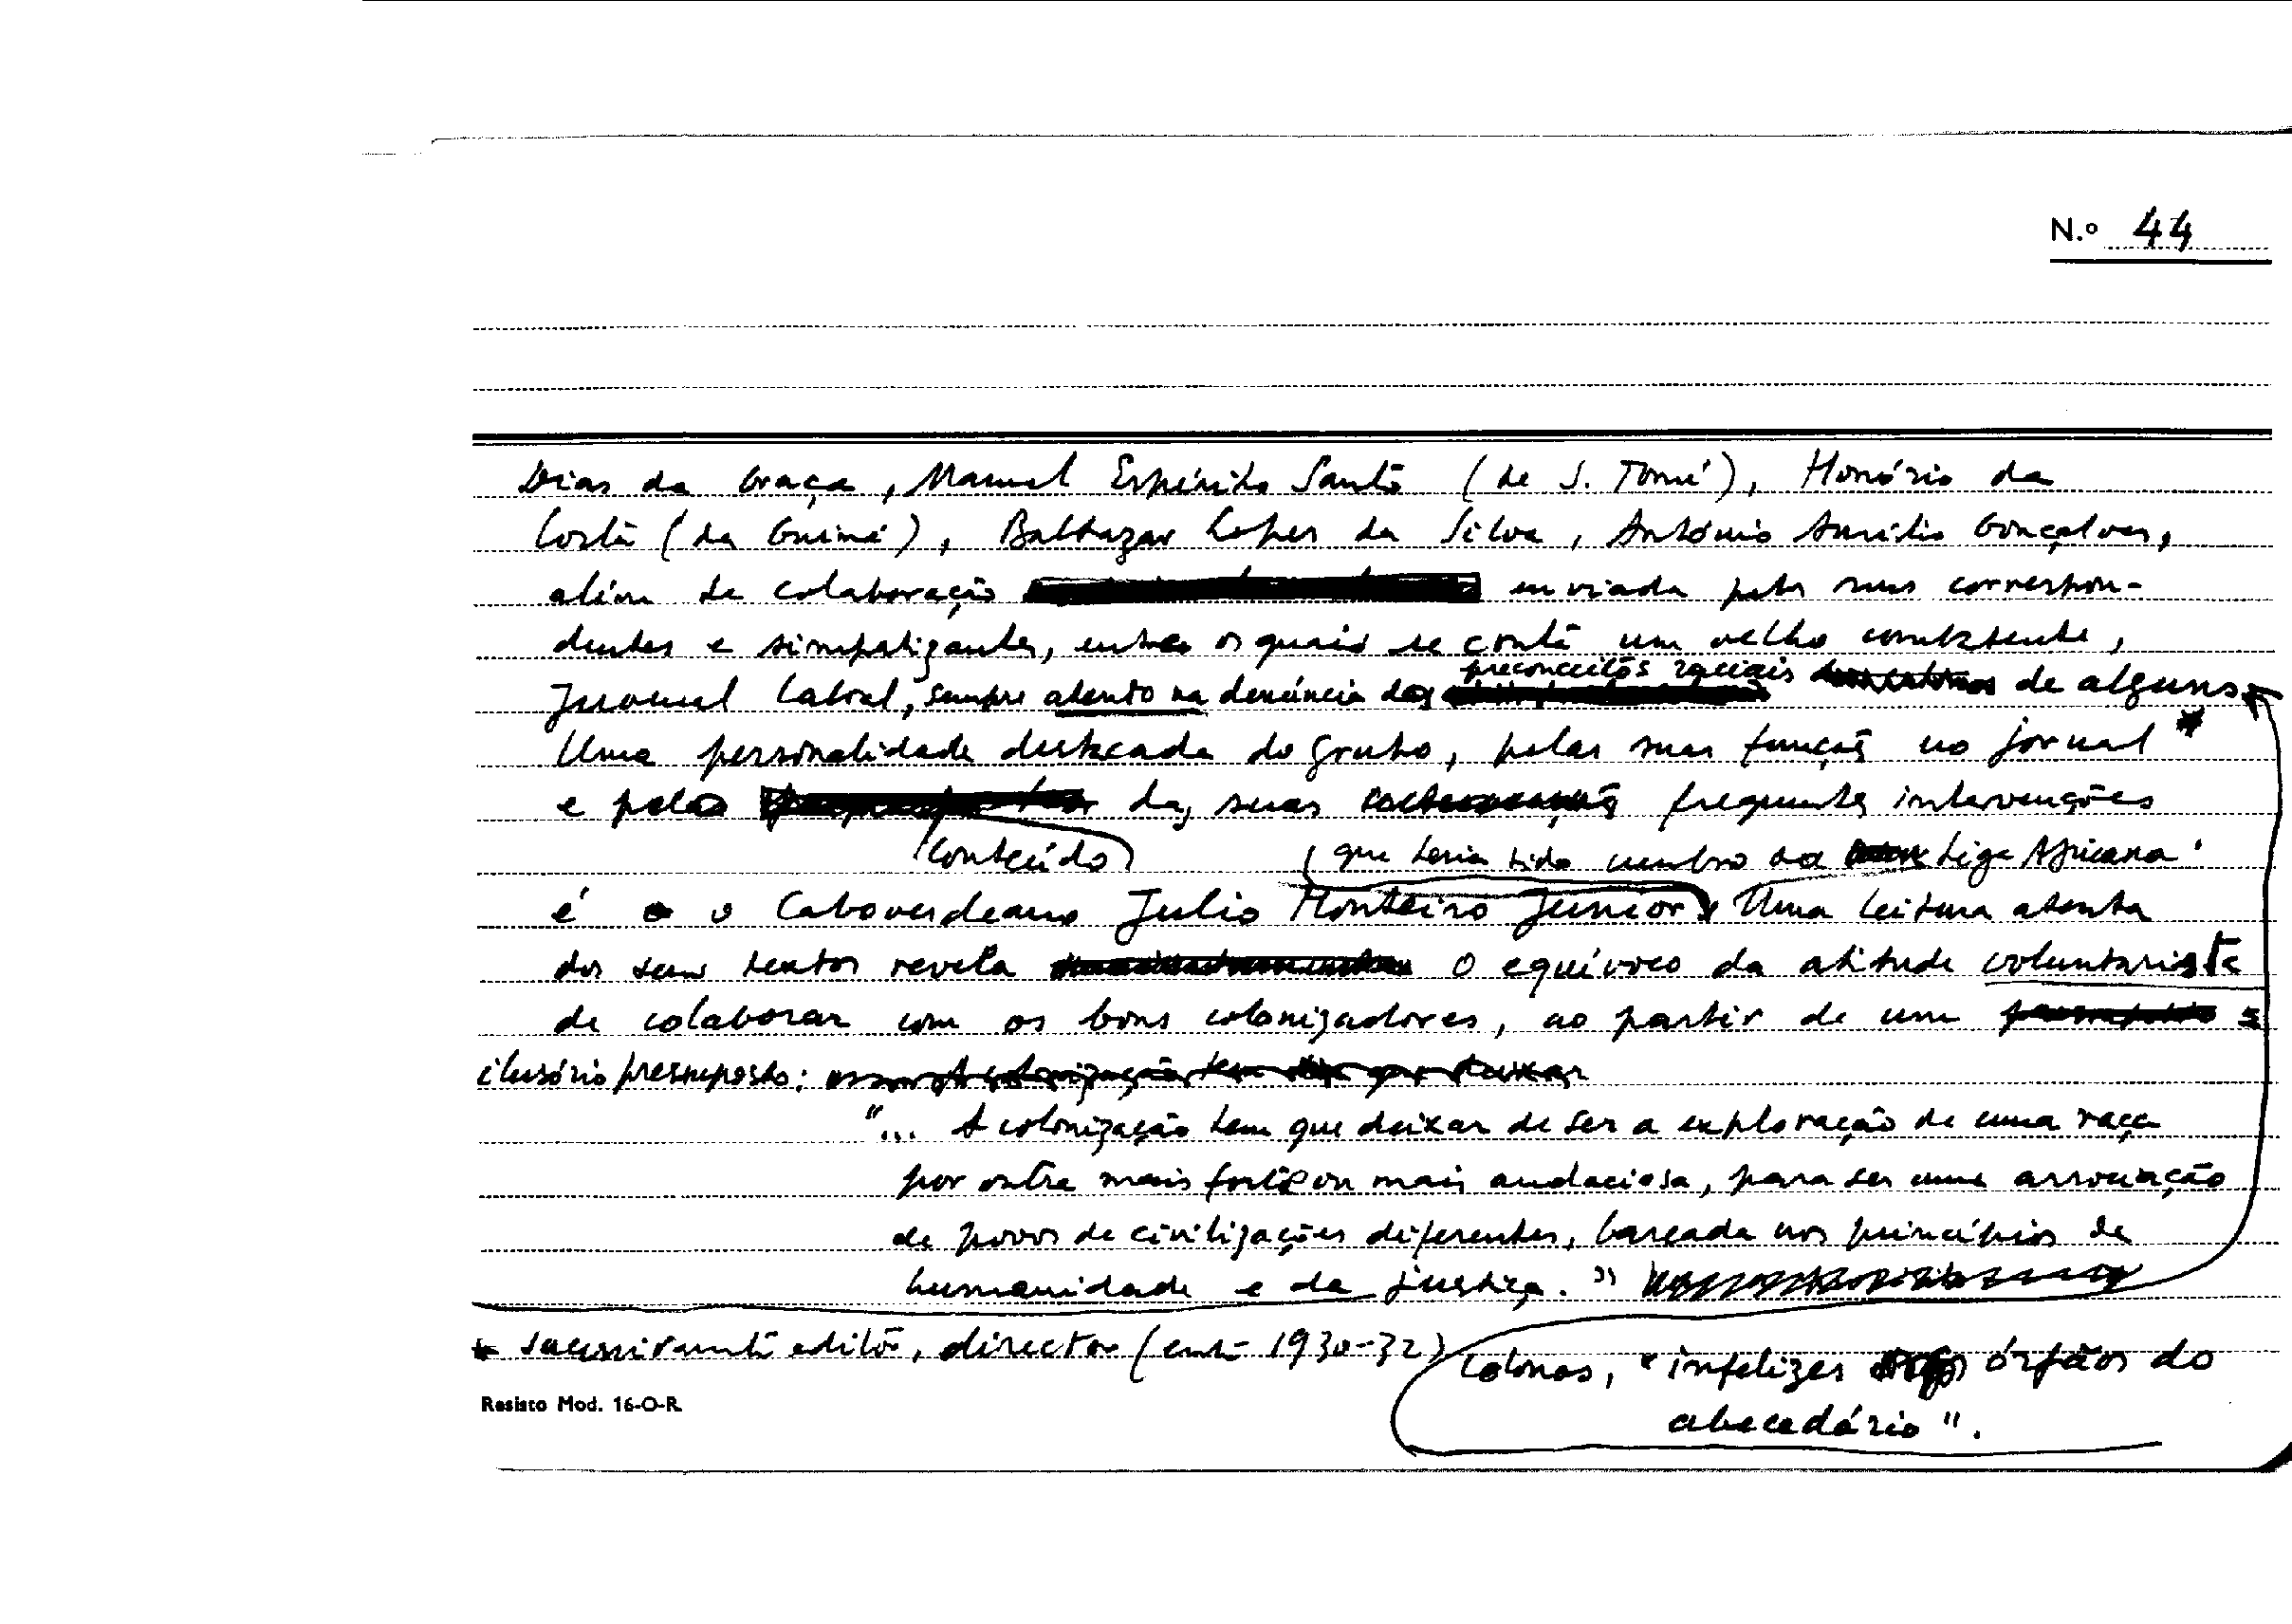 N.º 44
Dias da Graça, Manuel Espírito Santo (de S. Tomé), Honório da
Costa (da Guiné), Balthazar Lopes da Silva, António Aurélio Gonçalves,
além de colaboração enviada pelos seus correspon-
dentes e simpatizantes, entre os quais se conta um velho combatente,
preconceitos raciais
Juvenal Cabral, sempre atento na denúncia dos de alguns
Uma personalidade destacada do grupo, pelas suas funções no jornal *
e pelo das suas frequentes intervenções
conteúdo (que teria sido membro da Liga Africana
é o Caboverdeano Julio Monteiro Junior). Uma leitura atenta
dos seus textos revela o equívoco da atitude voluntarista
de colaborar com os bons colonizadores, ao partir de um
ilusório pressuposto:
"... A colonização tem que deixar de ser a exploração de uma raça
por outra mais forte ou mais audaciosa, para ser uma associação
de povos de civilizações diferentes, baseada nos princípios de
humanidade e da justiça."
* sucessivamente editor, director (entre 1930-32)
colonos, "infelizes órfãos do
abecedário".
Resisto Mod. 16-O-R.